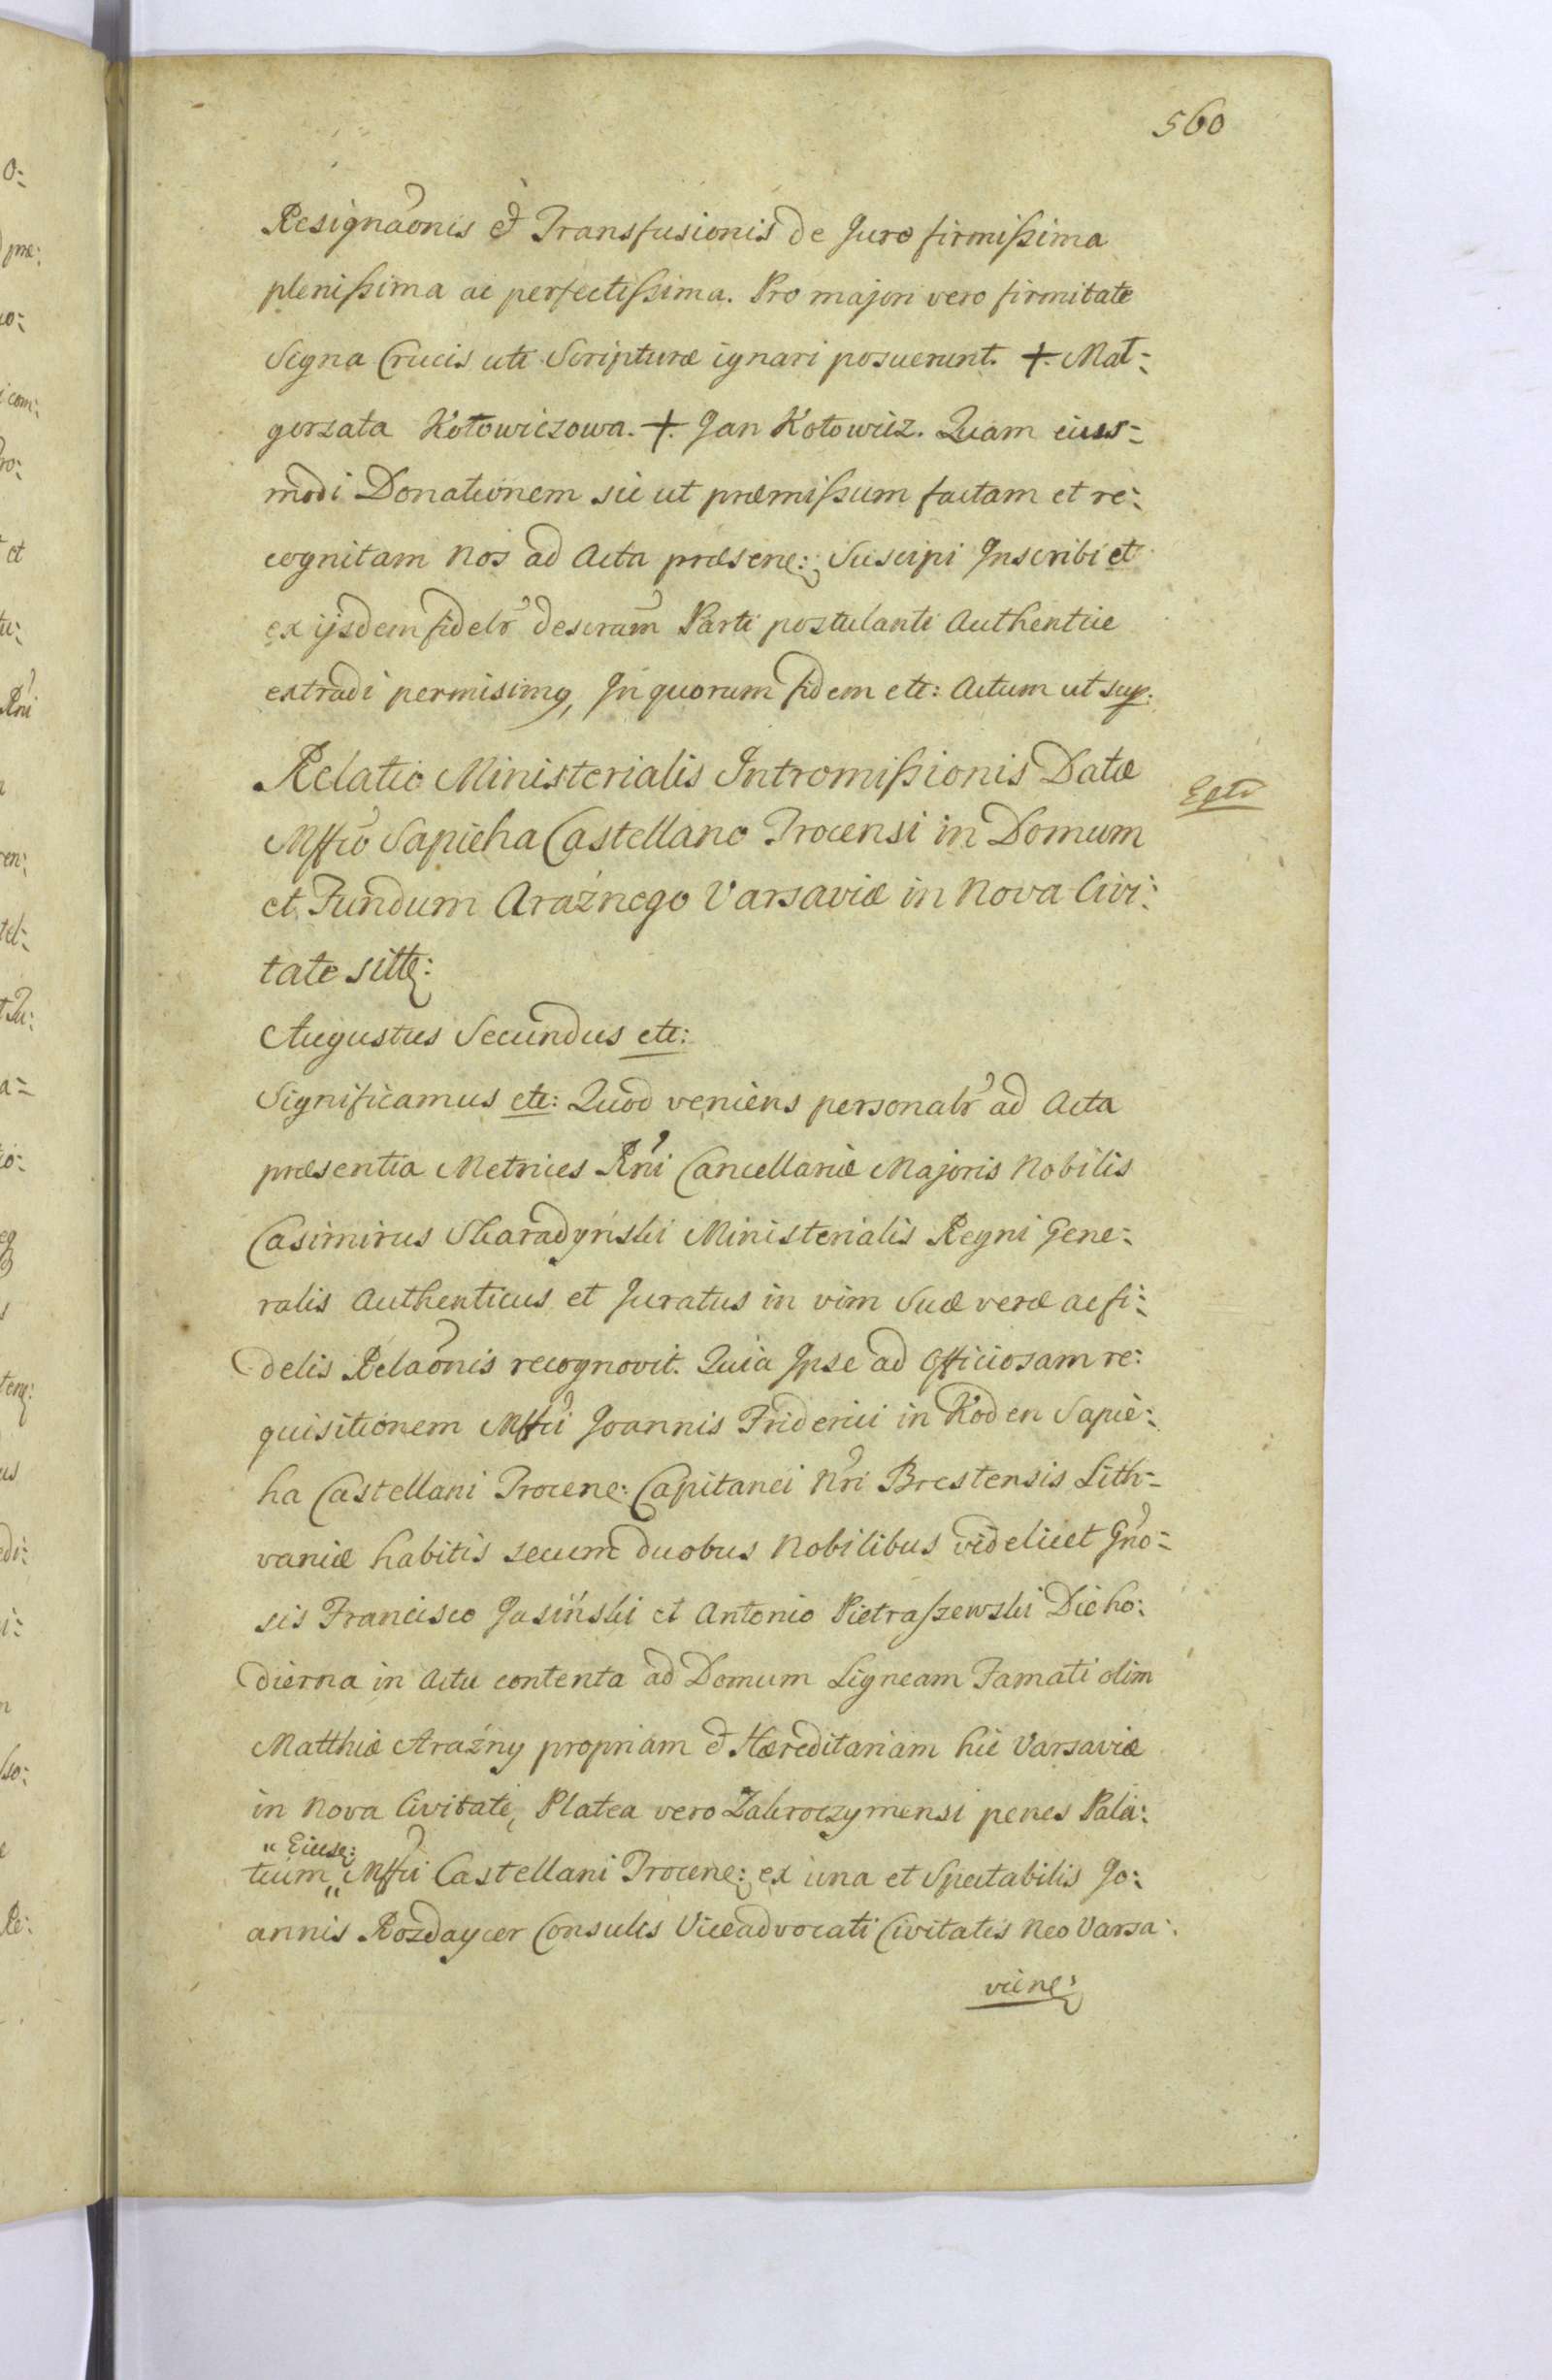 560
Resignãonis et Transfusionis de Jure firmissima
plenissima ac perfectissima. Pro majori vero firmitate
Signa Crucis uti Scripturæ ignari posuerunt. +. Mał=
gorzata Kołowiczowa. +. Jan Kołowicz. Quam eius=
modi Donationem sic ut præmissum factam et re:
cognitam Nos ad Acta præsenẽ: Suscipi Inscribi et
ex ijsdem fidelr descram Parti postulanti Authentice
extradi permisimꝯ, In quorum fidem etc: Actum ut sup:
Relatio Ministerialis Intromissionis Datæ
Mffco Sapieha Castellano Trocensi in Domum
et Fundum Araźnego Varsaviæ in Nova Civi:
tate sitt:
Augustus Secundus etc:
Significamus etc: Quod veniens personalr ad Acta
præsentia Metrices Rni Cancellariæ Majoris Nobilis
Casimirus Skaradyński Ministerialis Regni Gene:
ralis Authenticus et Juratus in vim Suæ veræ ac fi:
delis Relaõnis recognovit. Quia Ipse ad Officiosam re:
quisitionem Mffci Joannis Friderici in Koden Sapie:
ha Castellani Trocenẽ: Capitanei Nri Brestensis Lith=
vaniæ habitis secum duobus Nobilibus videlicet Gno=
sis Francisco Jasiński et Antonio Pietraszewski Die ho:
dierna in Actu contenta ad Domum Ligneam Famati olim
Matthiæ Araźny propriam et Hæreditariam hic Varsaviæ
in Nova Civitate, Platea vero Zakroczymensi penes Pala:
" Eiusd:
tium " Mffci Castellani Trocenẽ: ex una et Spectabilis Jo:
annis Rozdaycer Consulis Viceadvocati Civitatis Neo Varsa:
viene: